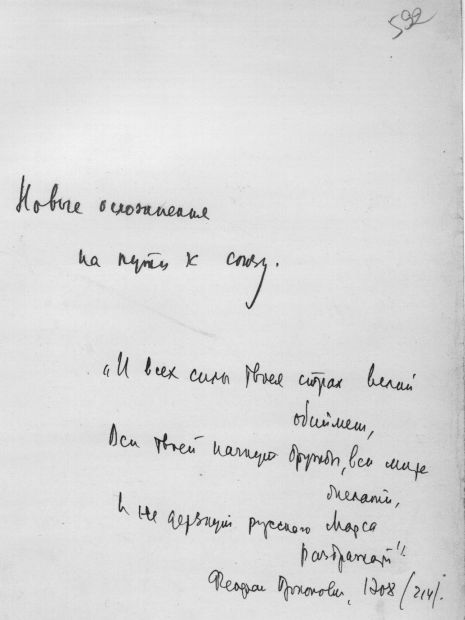 592
Новые осложнения
на пути к союзу.
„И всех силы твоея страх велий
обоймет,
Вси твоей начнут дружбы, вси мира
желати,
И не дерзнут русского Марса
раздражати".
Феофан Прокопович, 1708 (214).